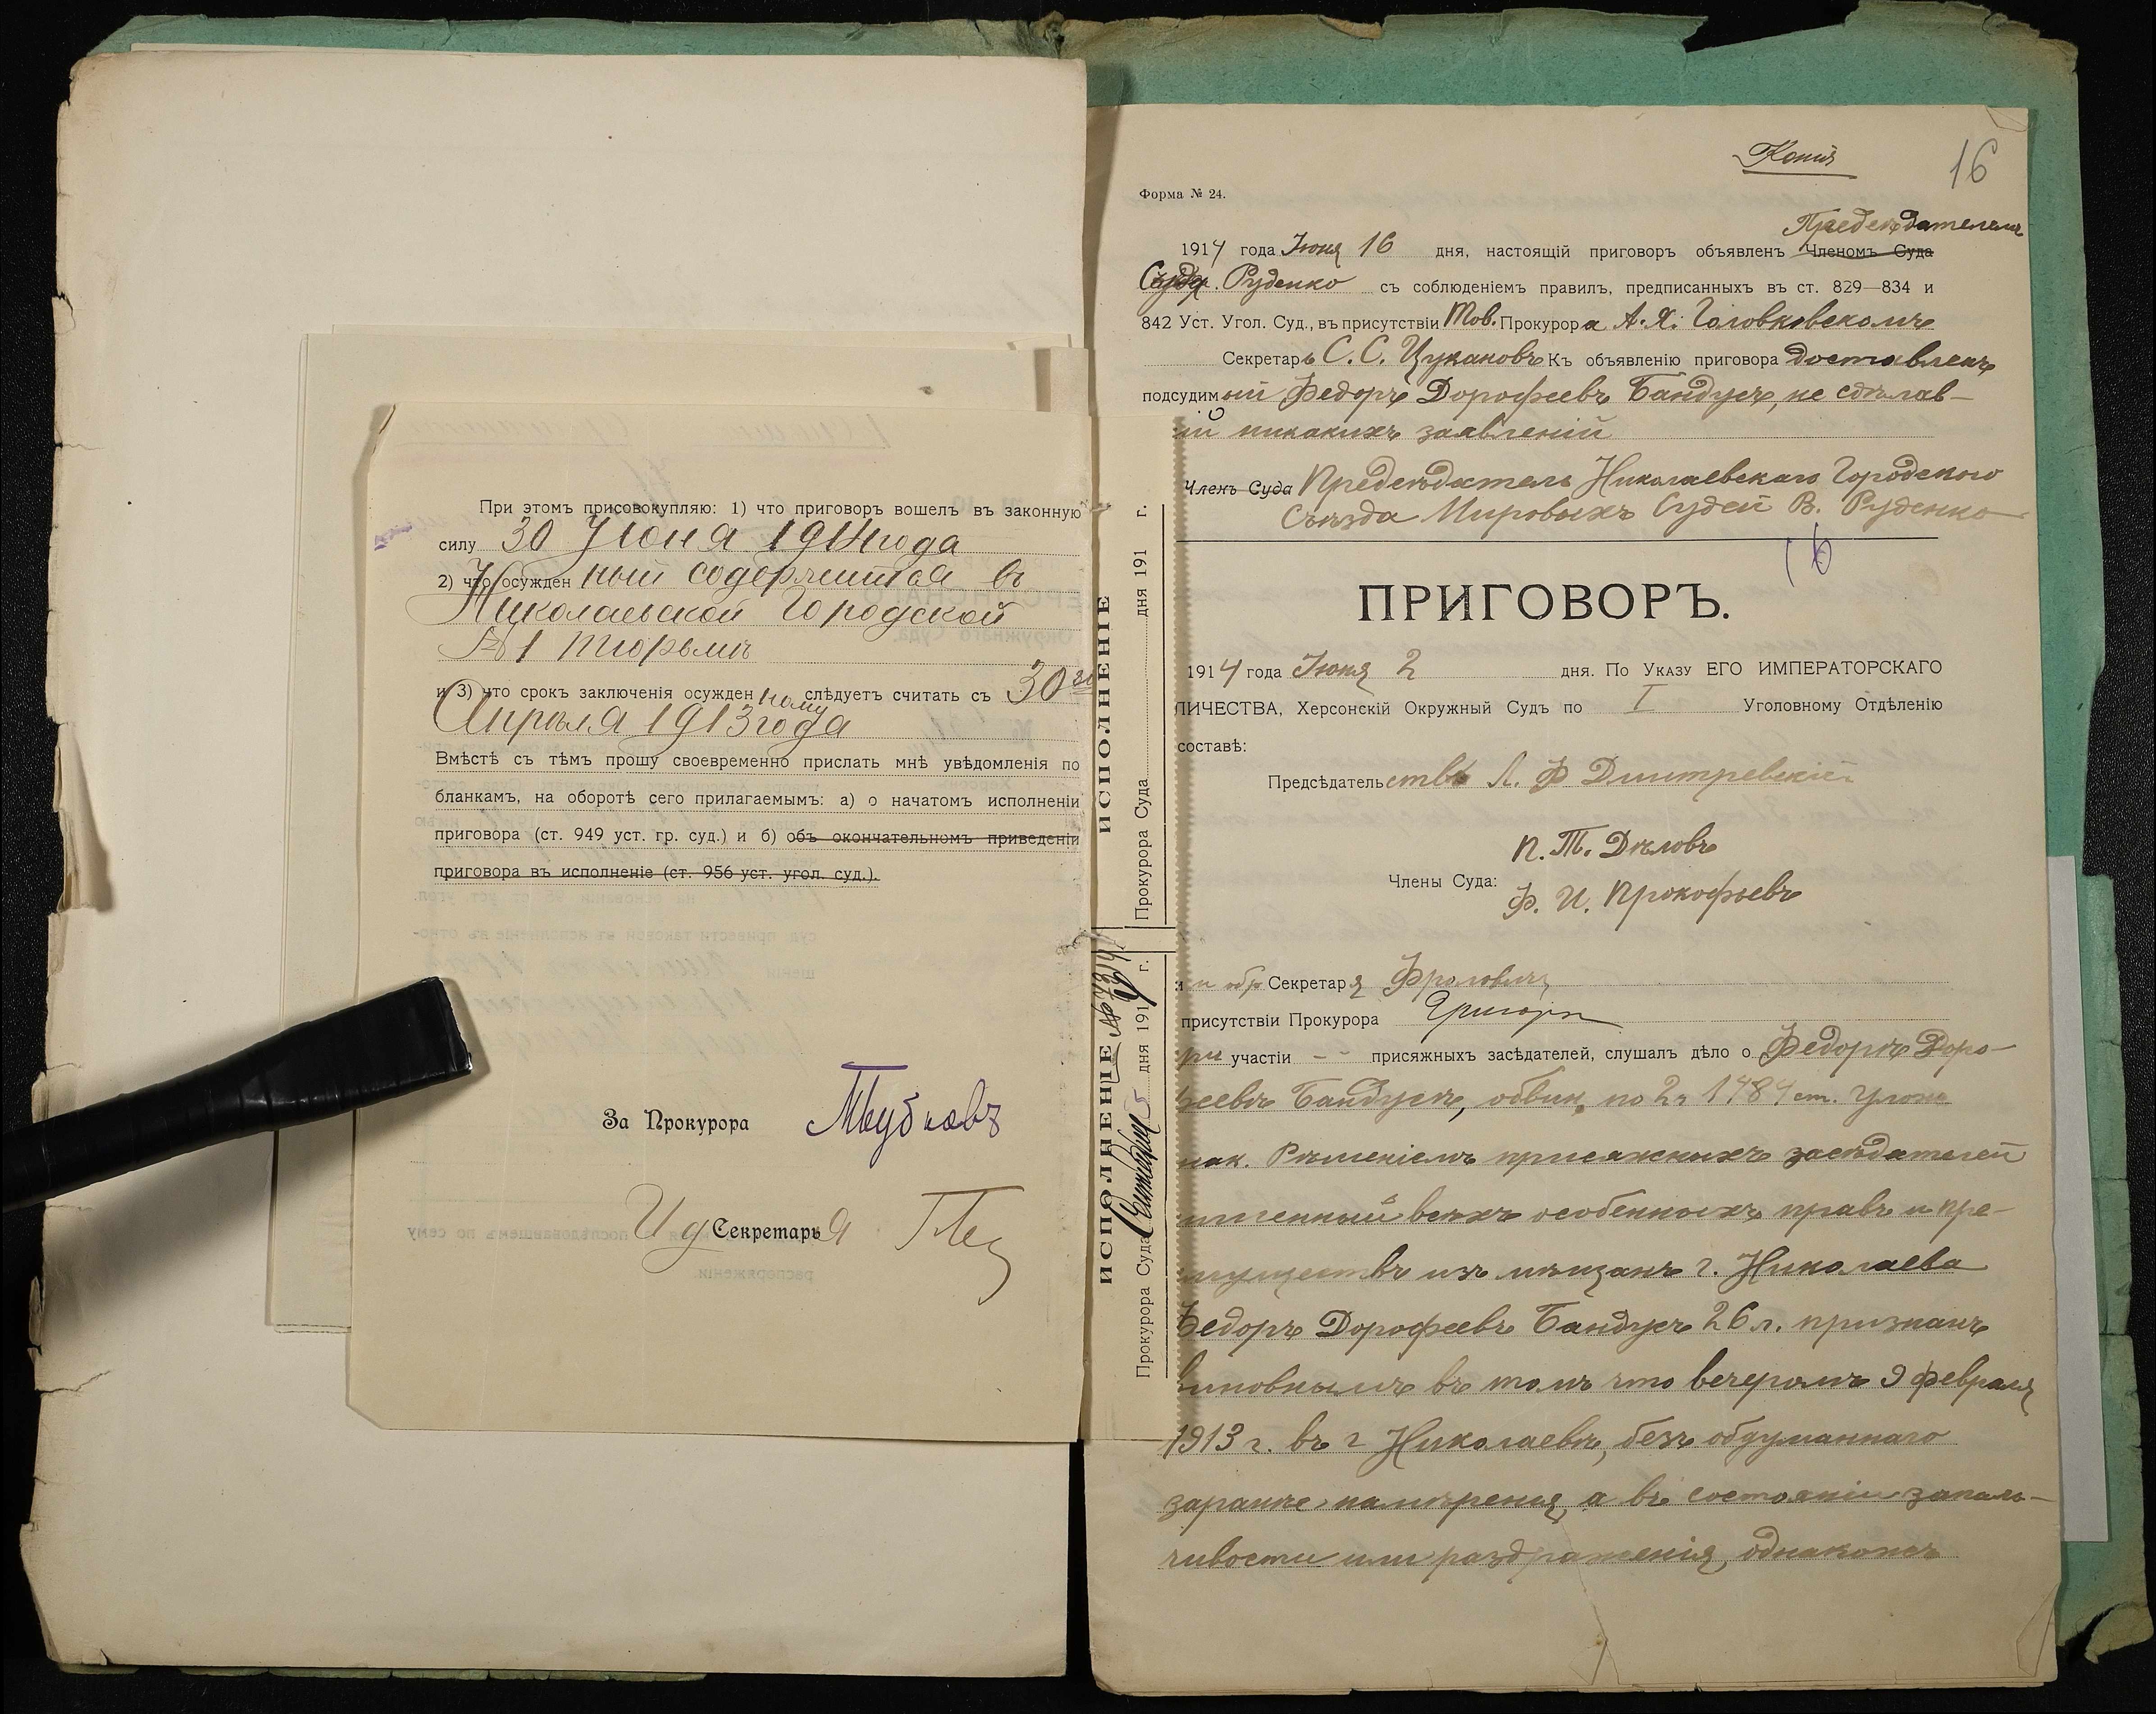 При этомъ присовокупляю: 1) что приговоръ вошелъ въ законную
силу 30 Июня 1914 года
2) что осужденный содержится въ
Николаевской Городской
№ 1 тюрьмѣ
и 3) что срокъ заключенія осужденному слѣдуетъ считать съ 30го
Апрѣля 1913 года
Вмѣстѣ съ тѣмъ прошу своевременно прислать мнѣ увѣдомленія по
бланкамъ, на оборотѣ сего прилагаемымъ: а) о начатомъ исполненіи
приговора (ст. 949 уст. гр. суд.) и б) объ окончательномъ приведеніи
приговора въ исполненіе (ст. 956 уст. угол. суд.).
За Прокурора
И д Секретаря
ИСПОЛНЕНІЕ
Прокурора Суда дня 191 г.
ИСПОЛНЕНІЕ
Прокурора Суда Сентября 5 дня 1914 г.
Копія
16
Форма № 24.
Предсѣдателемъ
1914 года Іюня 16 дня, настоящій приговоръ объявленъ Членомъ Суда
Руденко съ соблюденіемъ правилъ, предписанныхъ въ ст. 829—834 и
842 Уст. Угол. Суд., въ присутствіи Тов. Прокурора А. Я. Головковскомъ
Секретарь С. С. Цукановъ Къ объявленію приговора доставленъ
подсудимый Федоръ Дорофеевъ Бандусъ, не сдѣлав-
ій никакихъ заявленій
Членъ Суда Предсѣдатель Николаевскаго Городского
Съѣзда Мировыхъ Судей В. Руденко
16
ПРИГОВОРЪ.
1914 года Іюня 2 дня. По Указу ЕГО ИМПЕРАТОРСКАГО
ЛИЧЕСТВА, Херсонскій Окружный Судъ по I Уголовному Отдѣленію
составѣ:
Предсѣдательств. Л. Ф Дмитревскій
П. Т. Дѣловъ
Члены Суда:
Ф. И. Прокофьевъ
и об Секретаря Фроловѣ
присутствіи Прокурора
ри участіи - - присяжныхъ засѣдателей, слушалъ дѣло о Федорѣ Доро-
феевѣ Бандусѣ, обвин. по 2 ч 1484 ст. Улож
нак. Рѣшеніемъ присяжныхъ засѣдателей
лишенный всѣхъ особенныхъ правъ и пре-
имуществъ изъ мѣщанъ г. Николаева
Федоръ Дорофеевъ Бандусъ 26 л. признанъ
виновнымъ въ томъ что вечеромъ 9 февраля
1913 г. въ г Николаевѣ, безъ обдуманнаго
заранѣе намѣренія, а въ состояніи запаль-
чивости или раздраженія, однакожъ